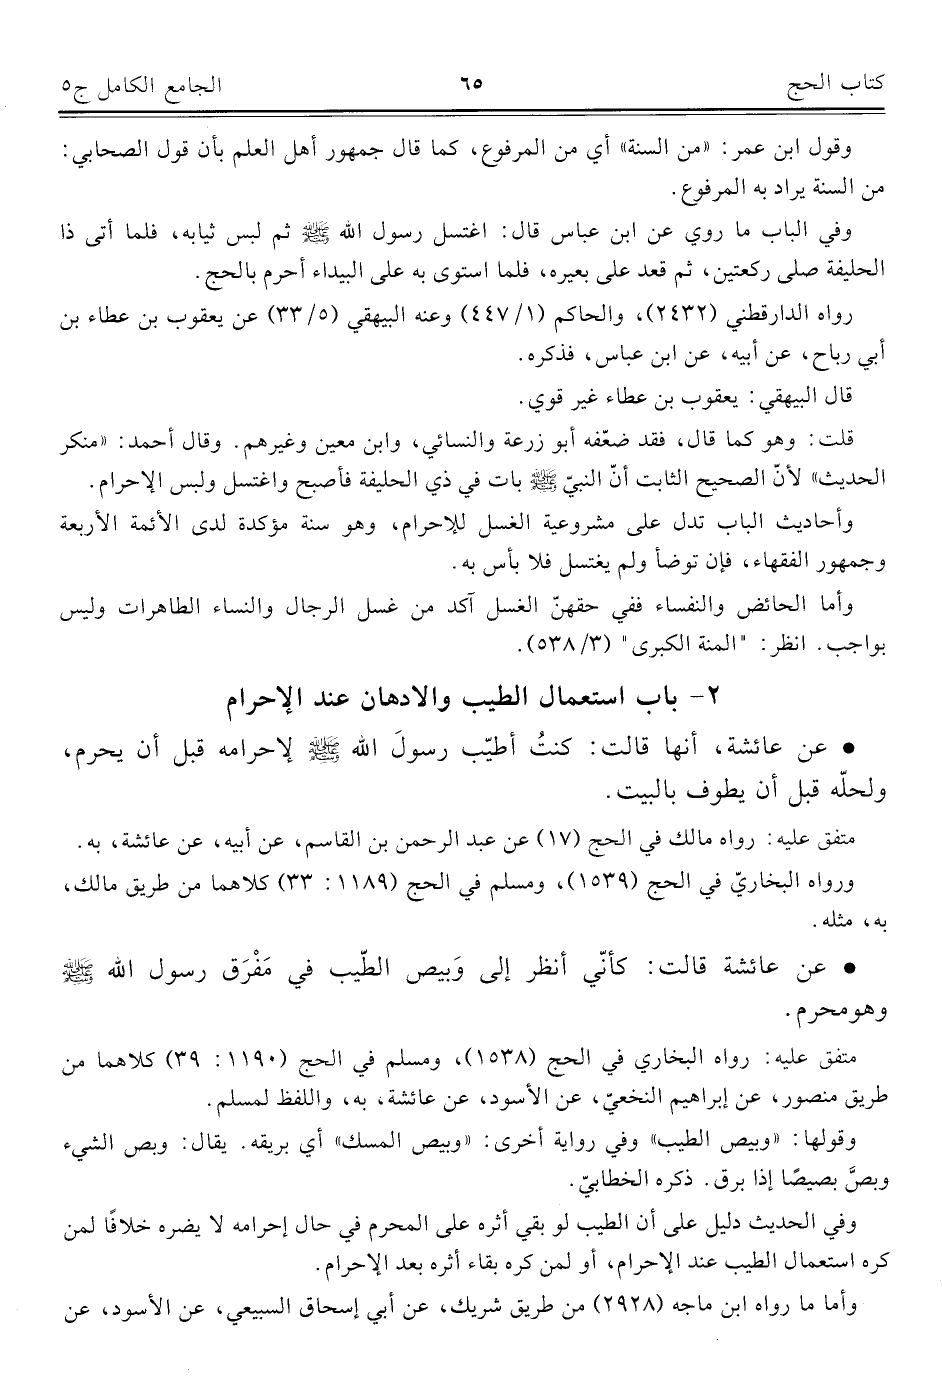 كتاب الحج ٦٥ الجامع الكامل ج٥
وقول ابن عمر: «من السنة» أي من المرفوع، كما قال جمهور أهل العلم بأن قول الصحابي:
من السنة يراد به المرفوع.
وفي الباب ما روي عن ابن عباس قال: اغتسل رسول الله ﷺ ثم لبس ثيابه، فلما أتى ذا
الحليفة صلى ركعتين، ثم قعد على بعيره، فلما استوى به على البيداء أحرم بالحج.
رواه الدارقطني (٢٤٣٢)، والحاكم (١/٤٤٧) وعنه البيهقي (٥/٣٣) عن يعقوب بن عطاء بن
أبي رباح، عن أبيه، عن ابن عباس، فذكره.
قال البيهقي: يعقوب بن عطاء غير قوي.
قلت: وهو كما قال، فقد ضعّفه أبو زرعة والنسائي، وابن معين وغيرهم. وقال أحمد: «منكر
الحديث» لأنّ الصحيح الثابت أنّ النبيّ ﷺ بات في ذي الحليفة فأصبح واغتسل ولبس الإحرام.
وأحاديث الباب تدل على مشروعية الغسل للإحرام، وهو سنة مؤكدة لدى الأئمة الأربعة
وجمهور الفقهاء، فإن توضأ ولم يغتسل فلا بأس به.
وأما الحائض والنفساء ففي حقهنّ الغسل آكد من غسل الرجال والنساء الطاهرات وليس
بواجب. انظر: "المنة الكبرى" (٣/٥٣٨).
٢- باب استعمال الطيب والادهان عند الإحرام
• عن عائشة، أنها قالت: كنتُ أطيّب رسولَ الله ﷺ لإحرامه قبل أن يحرم،
ولحلّه قبل أن يطوف بالبيت.
متفق عليه: رواه مالك في الحج (١٧) عن عبد الرحمن بن القاسم، عن أبيه، عن عائشة، به.
ورواه البخاريّ في الحج (١٥٣٩)، ومسلم في الحج (١١٨٩: ٣٣) كلاهما من طريق مالك،
به، مثله.
• عن عائشة قالت: كأنّي أنظر إلى وَبيص الطّيب في مَفْرَق رسول الله ﷺ
وهومحرم.
متفق عليه: رواه البخاري في الحج (١٥٣٨)، ومسلم في الحج (١١٩٠: ٣٩) كلاهما من
طريق منصور، عن إبراهيم النخعيّ، عن الأسود، عن عائشة، به، واللفظ لمسلم.
وقولها: «وبيص الطيب» وفي رواية أخرى: «وبيص المسك» أي بريقه. يقال: وبص الشيء
وبصَّ بصيصًا إذا برق. ذكره الخطابيّ.
وفي الحديث دليل على أن الطيب لو بقي أثره على المحرم في حال إحرامه لا يضره خلافًا لمن
كره استعمال الطيب عند الإحرام، أو لمن كره بقاء أثره بعد الإحرام.
وأما ما رواه ابن ماجه (٢٩٢٨) من طريق شريك، عن أبي إسحاق السبيعي، عن الأسود، عن